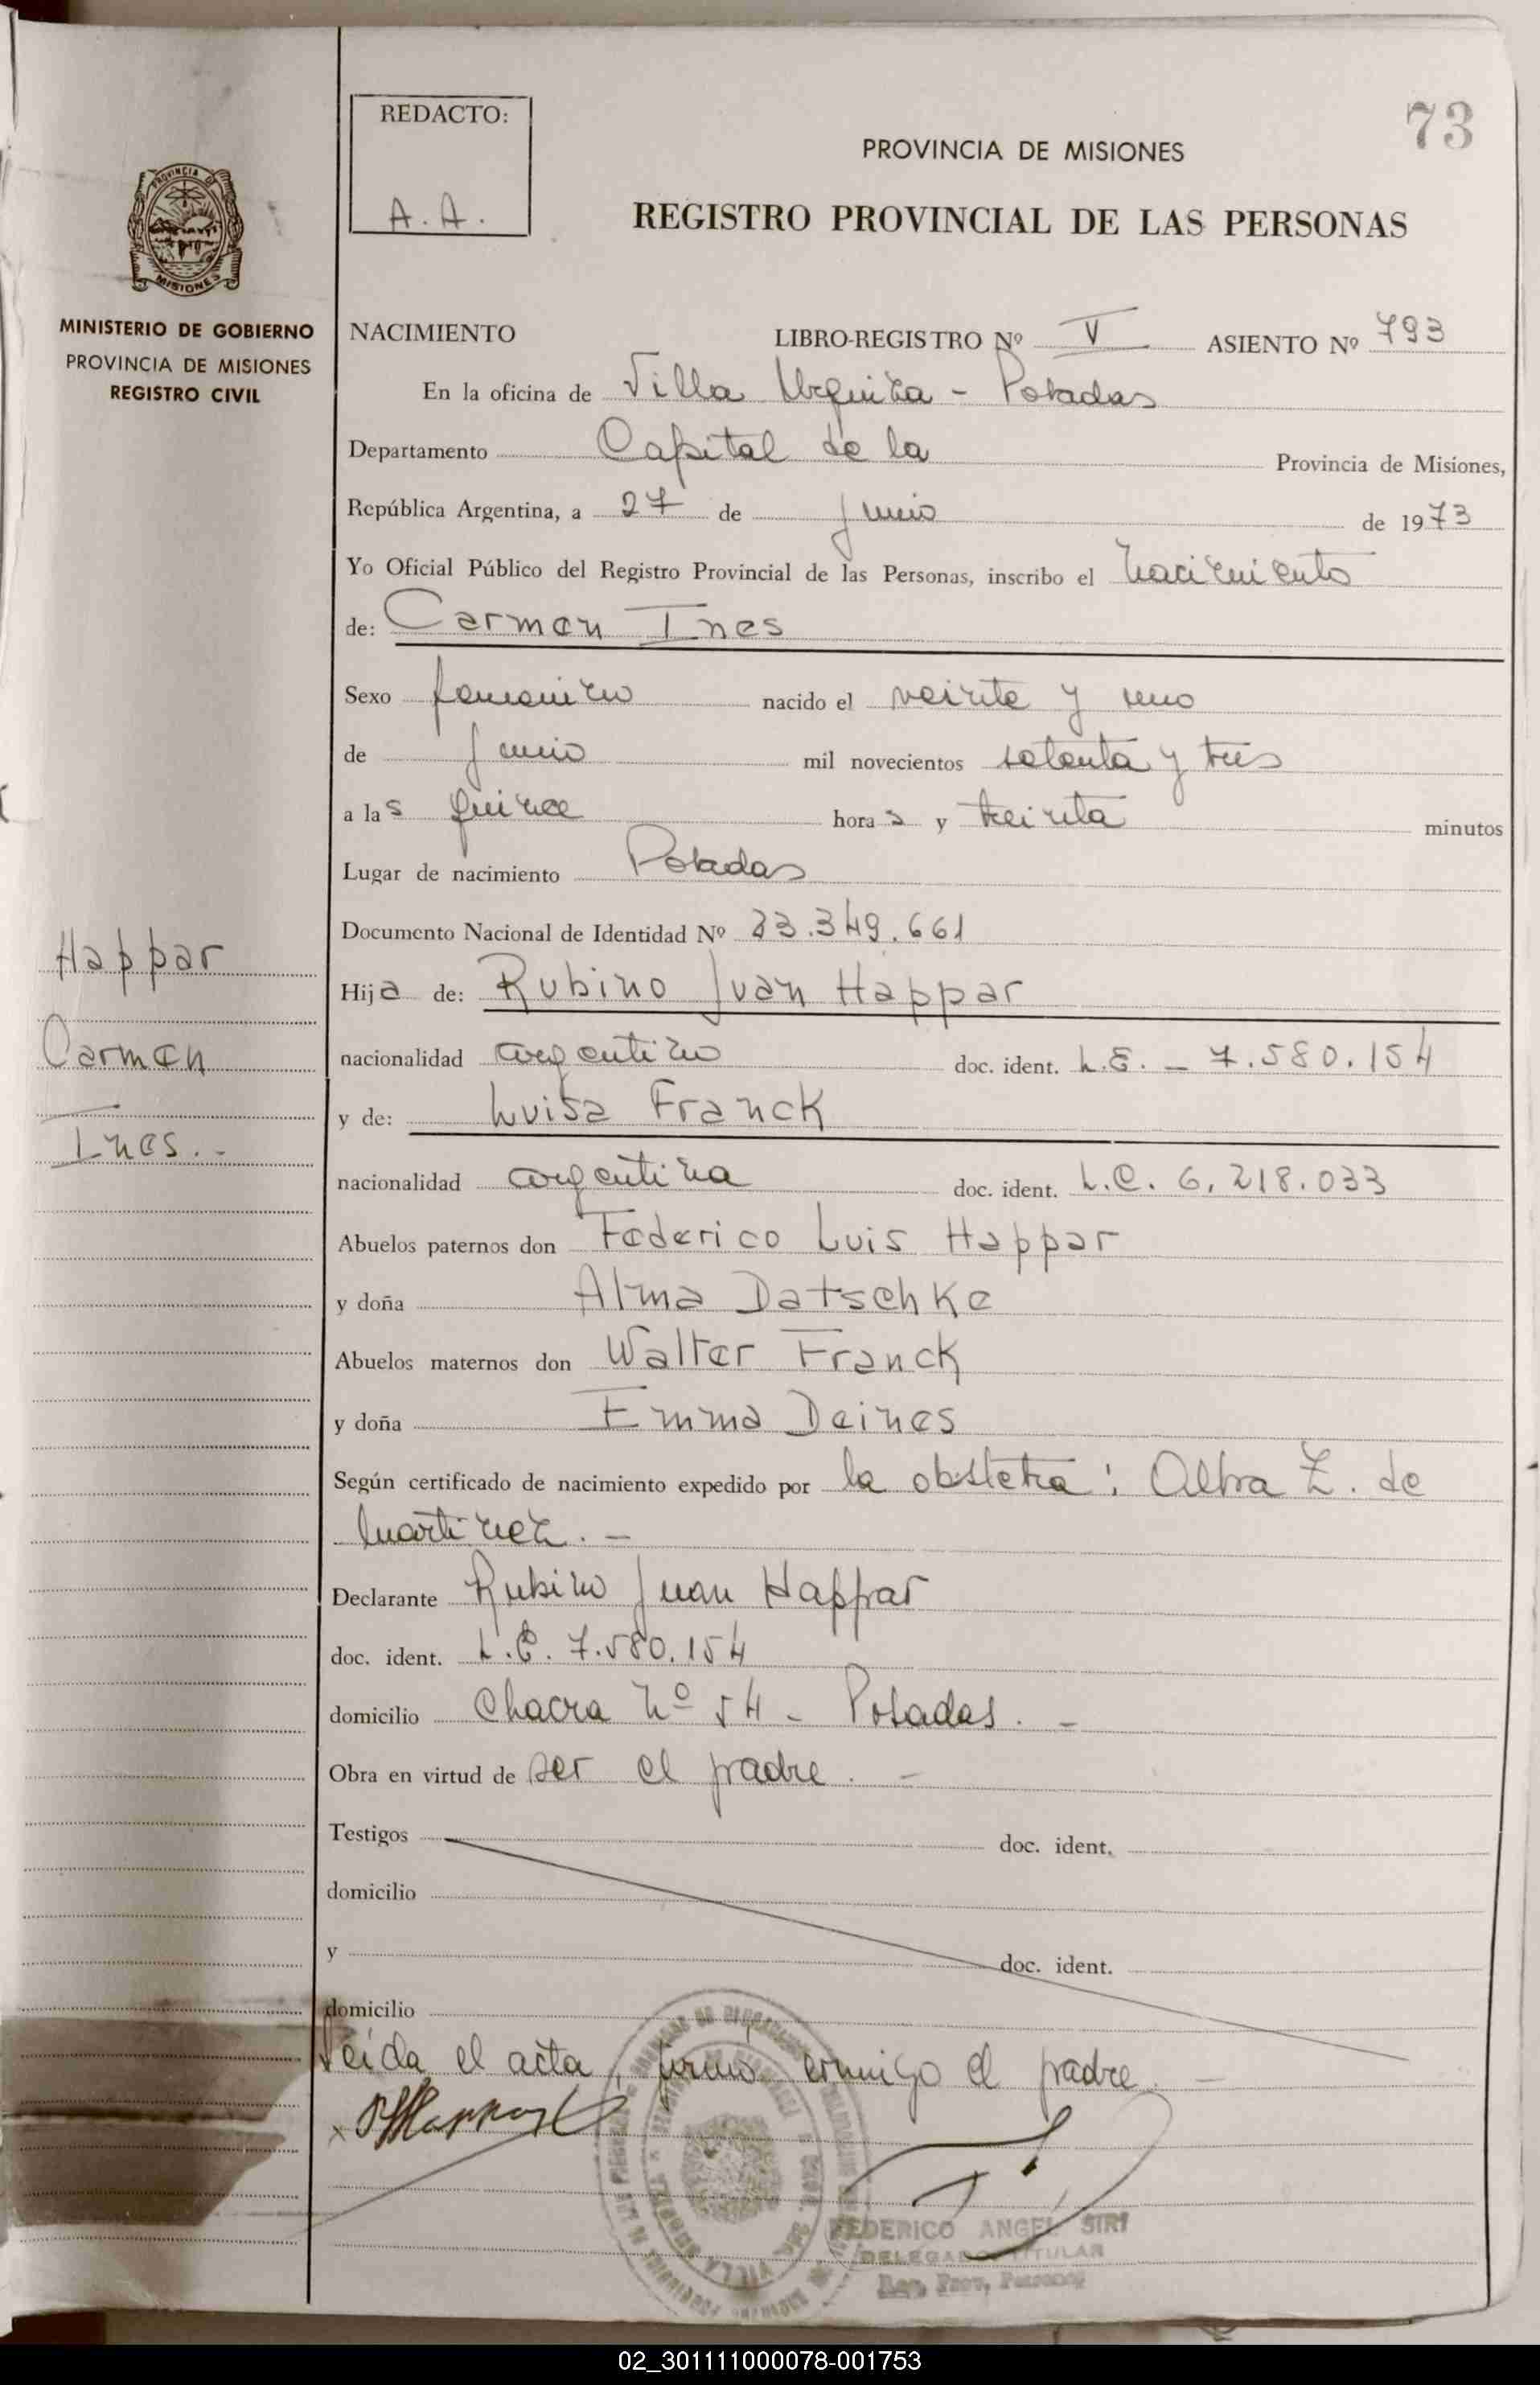 REDACTO:
A.A.
73
PROVINCIA DE MISIONES
REGISTRO PROVINCIAL DE LAS PERSONAS
PROVINCIA DE
MISIONES
MINISTERIO DE GOBIERNO
PROVINCIA DE MISIONES
REGISTRO CIVIL
NACIMIENTO LIBRO-REGISTRO Nº V ASIENTO Nº 793
En la oficina de Villa Urquiza - Posadas
Departamento Capital de la Provincia de Misiones,
República Argentina, a 27 de junio de 1973
Yo Oficial Público del Registro Provincial de las Personas, inscribo el nacimiento
de: Carmen Ines
Sexo femenino nacido el veinte y uno
de junio mil novecientos setenta y tres
a las quince horas y treinta minutos
Lugar de nacimiento Posadas
Documento Nacional de Identidad Nº 23.349.661
Happar
Carmen
Ines.-
Hija de: Rubino Juan Happar
nacionalidad argentino doc. ident. L.E. - 7.580.154
y de: Luisa Franck
nacionalidad argentina doc. ident. L.C. 6.218.033
Abuelos paternos don Federico Luis Happar
y doña Alma Datschke
Abuelos maternos don Walter Franck
y doña Emma Deines
Según certificado de nacimiento expedido por la obstetra: Alba Z. de
Martinez. -
Declarante Rubino Juan Happar
doc. ident. L.E. 7.580.154
domicilio Chacra Nº 54 - Posadas. -
Obra en virtud de ser el padre. -
Testigos doc. ident.
domicilio
y doc. ident.
domicilio
Leida el acta, firmó conmigo el padre. -
FEDERICO ANGEL SIRI
DELEGADO TITULAR
Reg. Prov. Personas
02_301111000078-001753